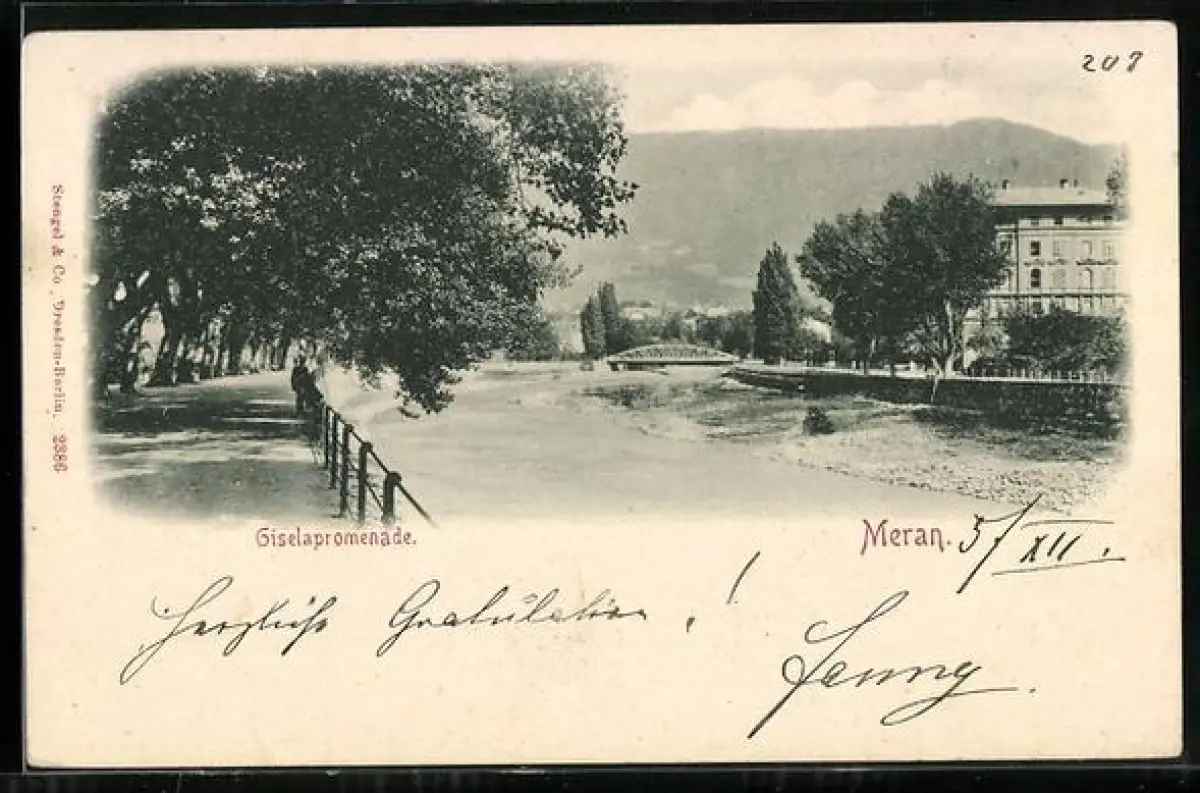 207
Stengel & Co., Dresden-Berlin. 2386
Giselapromenade.
Meran. 5/XII.
Herzliche Gratulation!
Fanny.